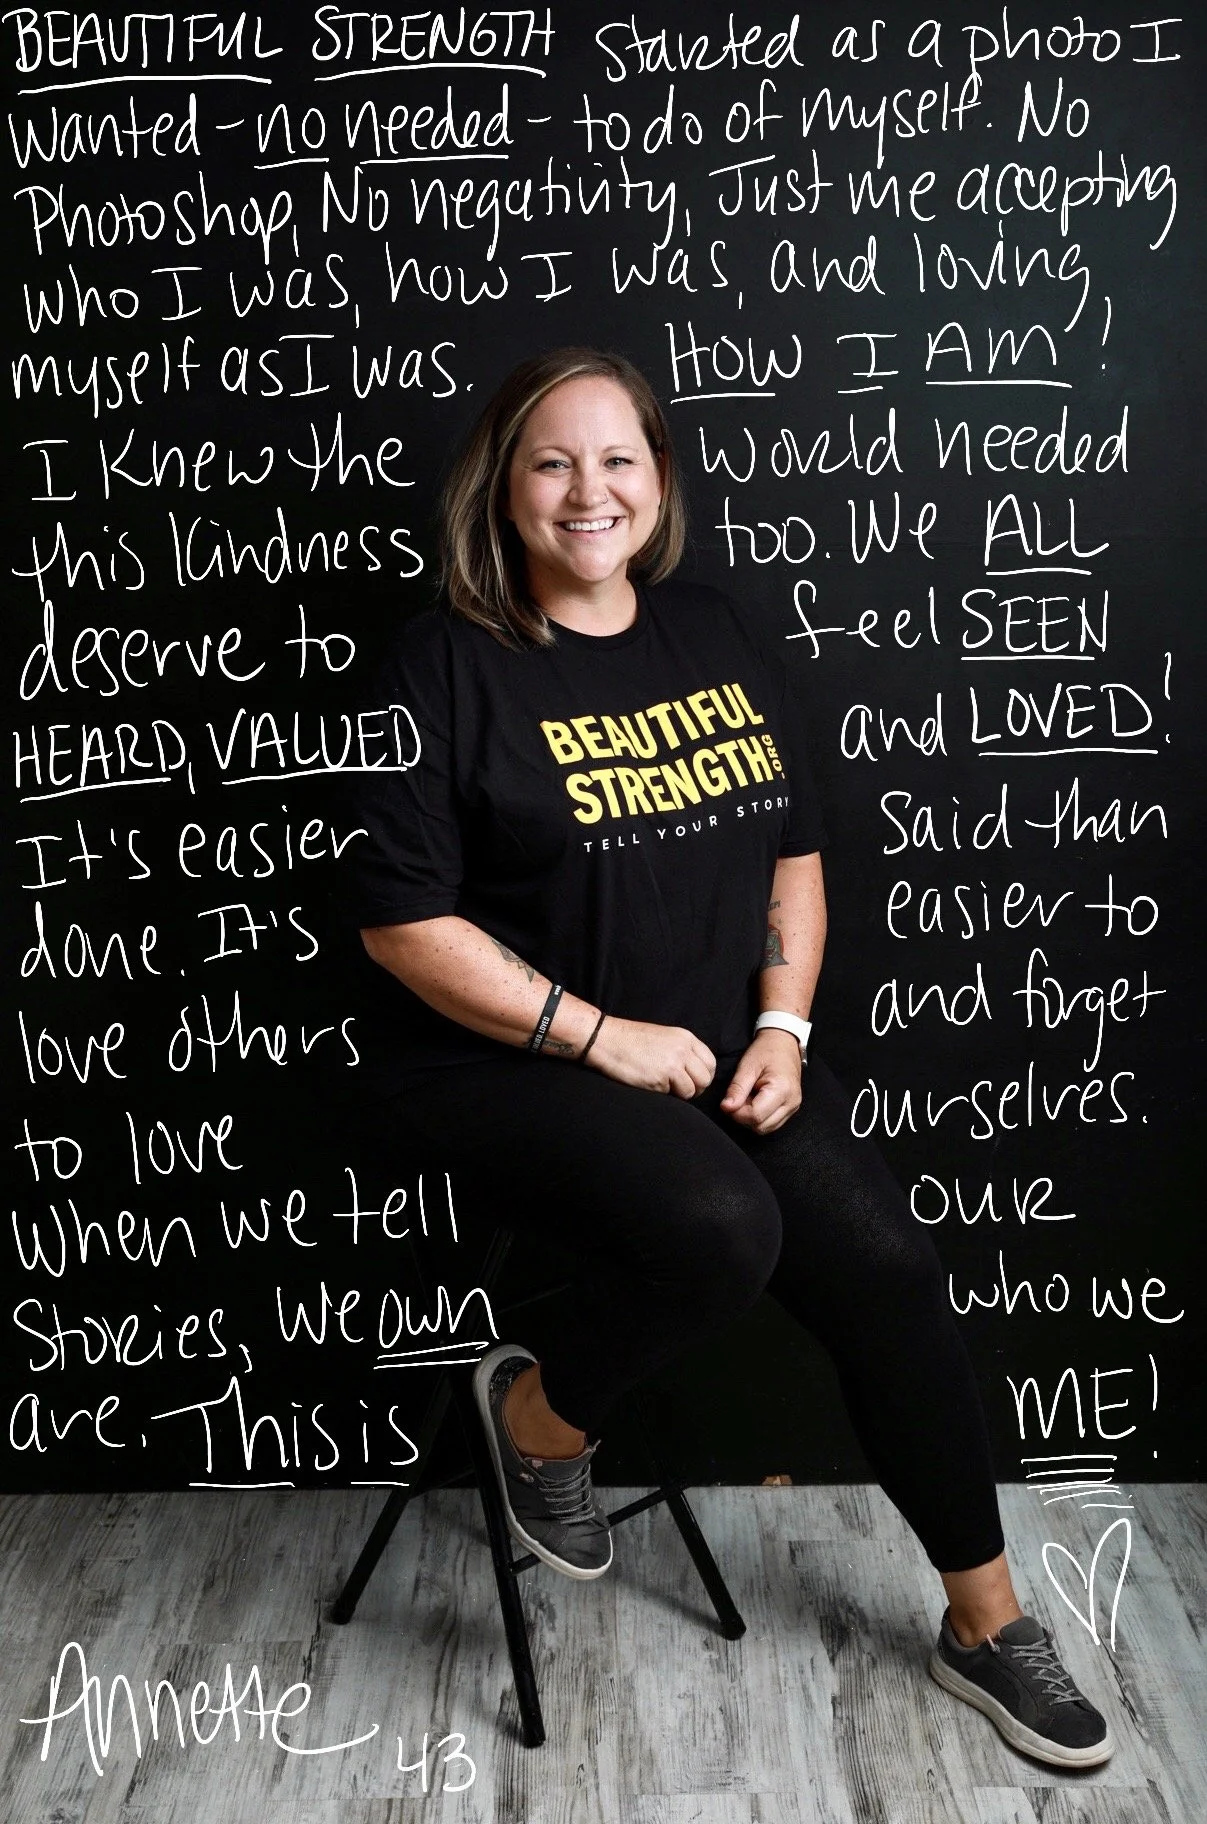 BEAUTIFUL STRENGTH started as a photo I
wanted - no needed - to do of myself. No
Photoshop, No negativity, Just me accepting
who I was, how I was, and loving
myself as I was. HOW I AM!
I knew the world needed
this kindness too. We ALL
deserve to feel SEEN
HEARD, VALUED and LOVED!
It's easier said than
done. It's easier to
love others and forget
to love ourselves.
when we tell our
stories, we own who we
are. This is ME!
BEAUTIFUL
STRENGTH.ORG
TELL YOUR STORY
LOVED
Annette 43